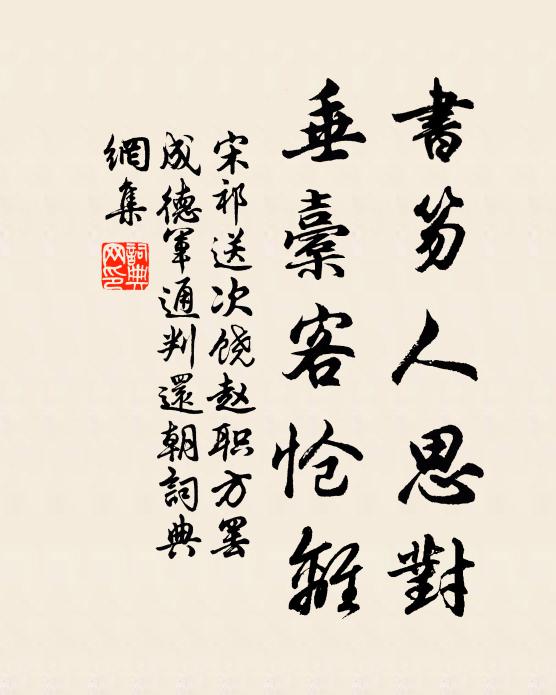 書笏人思對
垂橐客怆離
宋祁送次饶赵职方罢
成德軍通判還朝詞典
網集
詞典网印